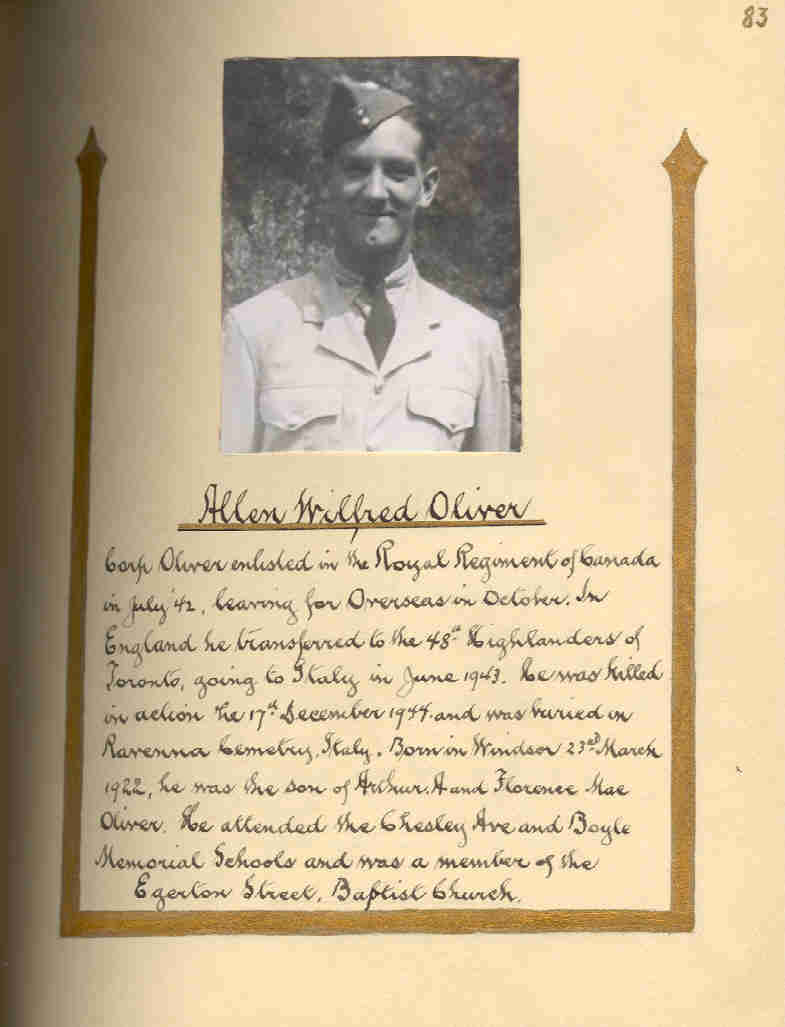 83
Allen Wilfred Oliver
Corp Oliver enlisted in the Royal Regiment of Canada
in July '42, leaving for Overseas in October. In
England he transferred to the 48th Highlanders of
Toronto, going to Italy in June 1943. He was killed
in action the 17th December 1944 and was buried in
Ravenna Cemetry, Italy. Born in Windsor 23rd March
1922, he was the son of Arthur. A and Florence Mae
Oliver. He attended the Chesley Ave and Boyle
Memorial Schools and was a member of the
Egerton Street, Baptist Church.